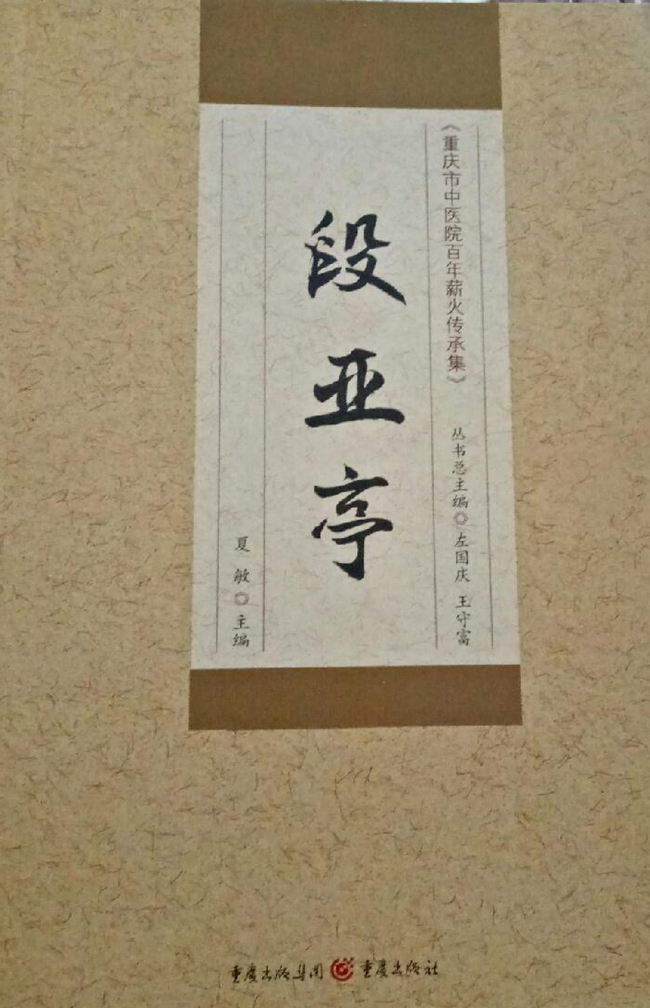 《重庆市中医院百年薪火传承集》
丛书总主编◎左国庆 王守富
段亚亭
夏敏◎主编
重庆出版集团 重庆出版社